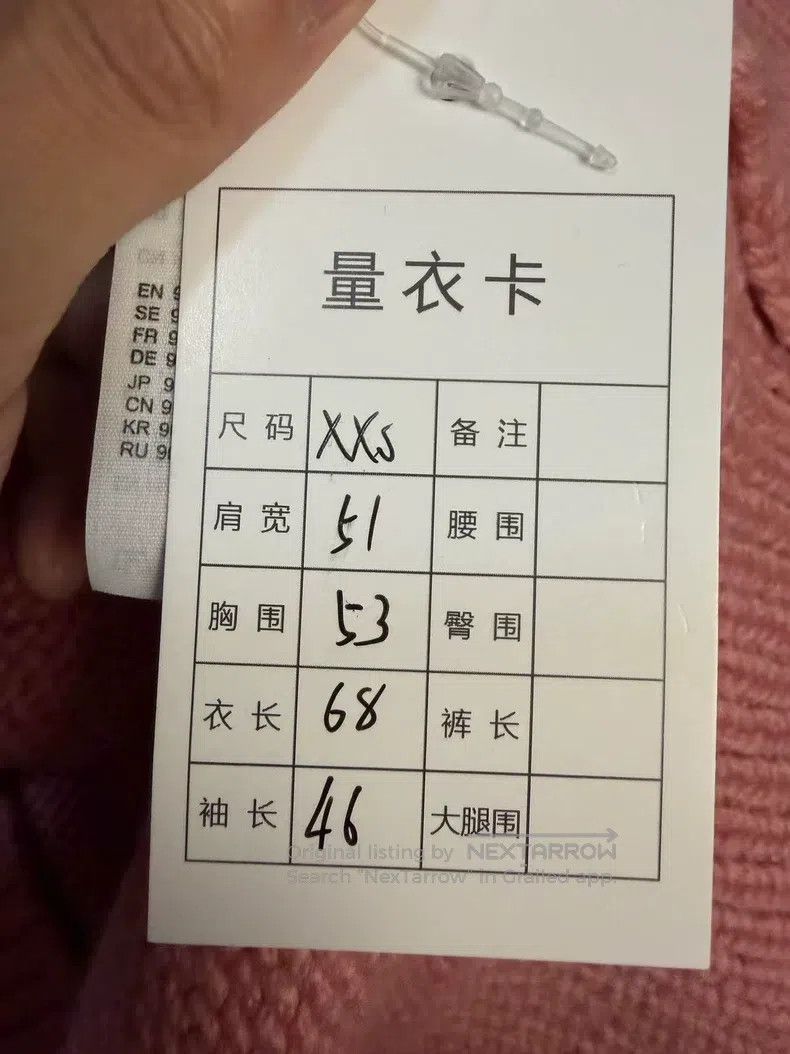 EN 9
SE 9
FR 9
DE 9
JP 9
CN 9
KR 9
RU 9
量衣卡
尺码 XXS 备注
肩宽 51 腰围
胸围 53 臀围
衣长 68 裤长
袖长 46 大腿围
Original listing by NEXTARROW
Search "NexTarrow" in Grailed app.